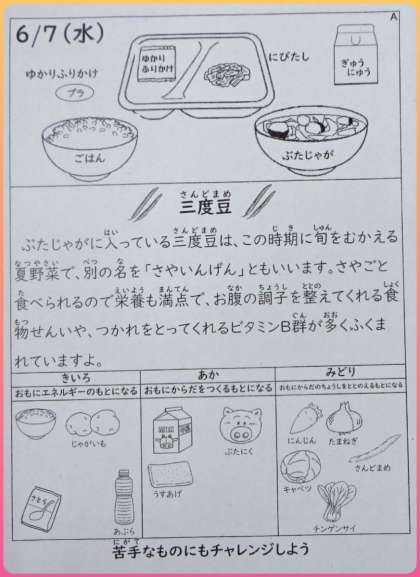 A
6/7(水)
ゆかりふりかけ
プラ
ゆかり
ふりかけ
にびたし
ぎゅう
にゅう
ごはん
ぶたじゃが
さんどまめ
三度豆
はい さんどまめ じき しゅん
ぶたじゃがに入っている三度豆は、この時期に旬をむかえる
なつやさい べつ な
夏野菜で、別の名を「さやいんげん」ともいいます。さやごと
た えいよう まんてん なか ちょうし ととの しょく
食べられるので栄養も満点で、お腹の調子を整えてくれる食
もつ ぐん おお
物せんいや、つかれをとってくれるビタミンB群が多くふくま
れていますよ。
きいろ
おもにエネルギーのもとになる
じゃがいも
さとう
あぶら
あか
おもにからだをつくるもとになる
ぶたにく
うすあげ
みどり
おもにからだのちょうしをととのえるもとになる
にんじん
たまねぎ
さんどまめ
キャベツ
チンゲンサイ
にがて
苦手なものにもチャレンジしよう